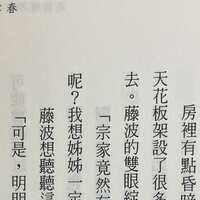 春
房裡有點昏暗
天花板架設了很多
去。藤波的雙眼綻
「宗家竟然有
呢？我想姊姊一定
藤波想聽聽這
「可是，明明